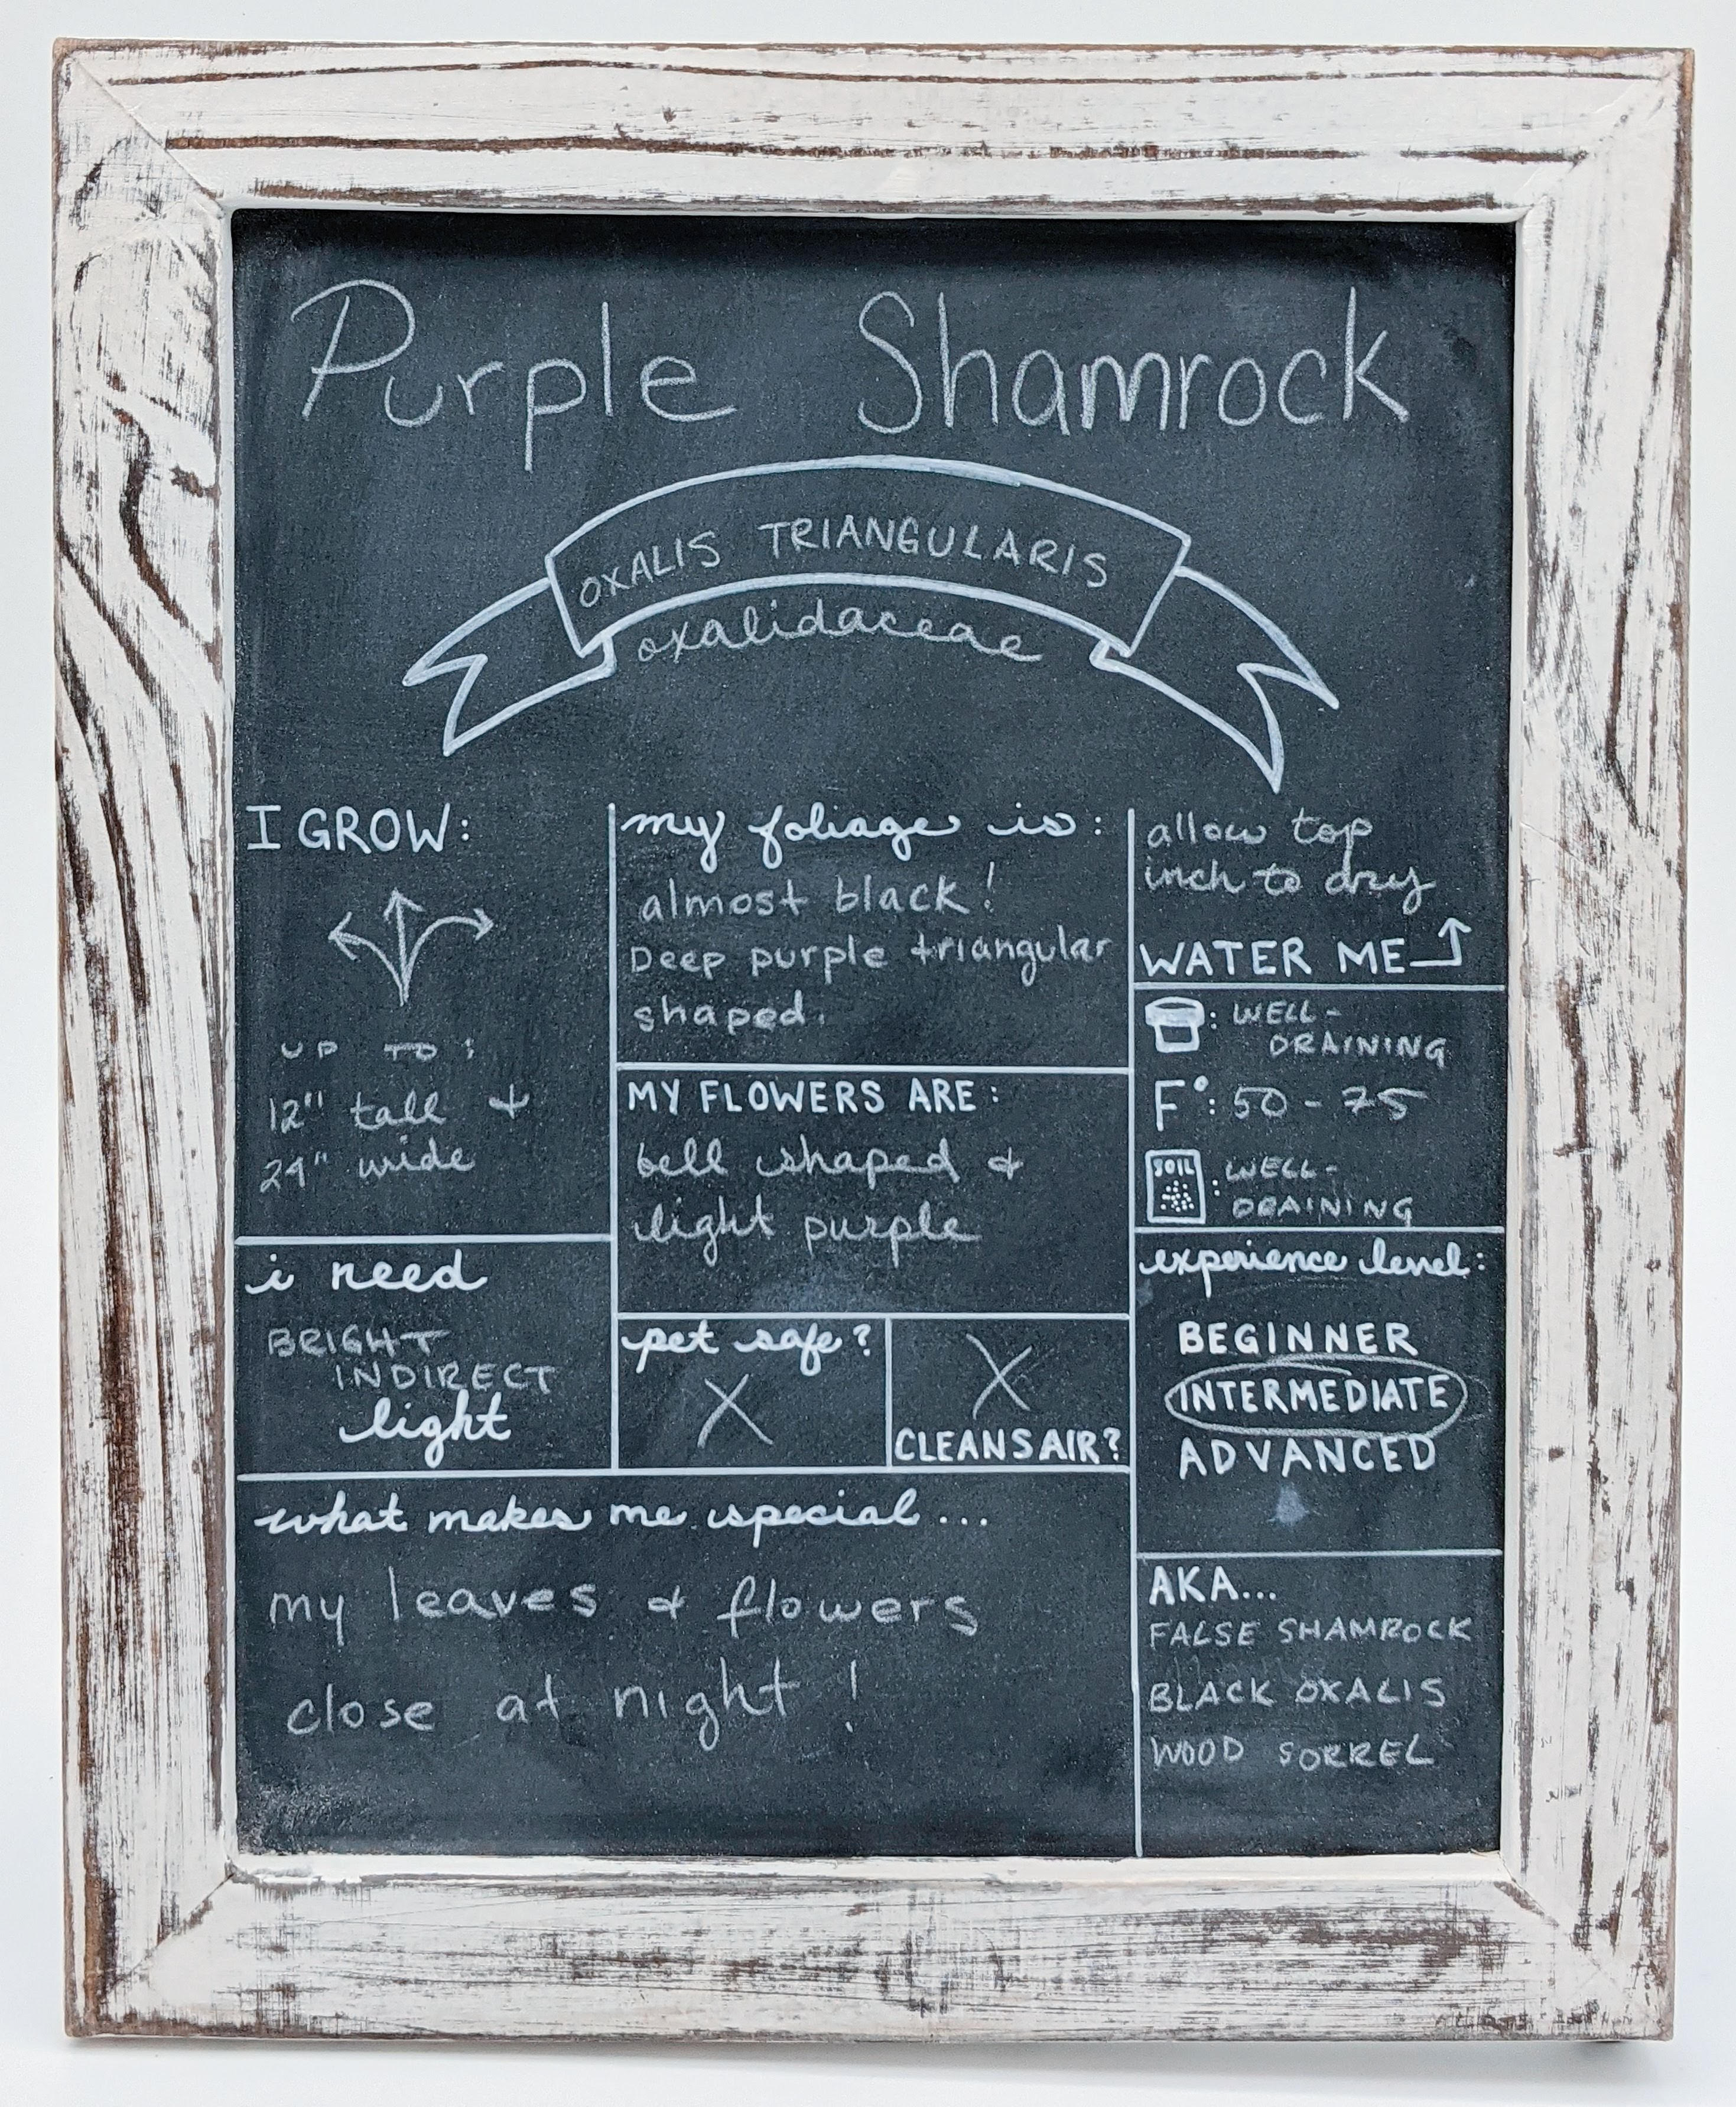 Purple Shamrock
OXALIS TRIANGULARIS
oxalidaceae
I GROW:
UP TO:
12" tall +
24" wide
i need
BRIGHT
INDIRECT
light
my foliage is:
almost black!
Deep purple triangular
shaped.
MY FLOWERS ARE:
bell shaped &
light purple
pet safe?
X
X
CLEANS AIR?
allow top
inch to dry
WATER ME
: WELL-
DRAINING
F°: 50-75
SOIL
: WELL-
DRAINING
experience level:
BEGINNER
INTERMEDIATE
ADVANCED
what makes me special...
my leaves & flowers
close at night!
AKA...
FALSE SHAMROCK
BLACK OXALIS
WOOD SORREL